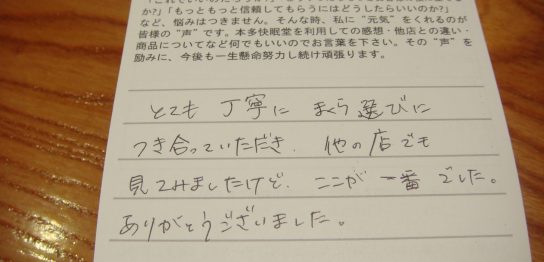 「これでいいのだろう
か?」「もっともっと信頼してもらうにはどうしたらいいのか?」
など、悩みはつきません。そんな時、私に“元気”をくれるのが
皆様の“声”です。本多快眠堂を利用しての感想・他店との違い・
商品についてなど何でもいいのでお言葉を下さい。その“声”を
励みに、今後も一生懸命努力し続け頑張ります。
とても 丁寧に まくら選びに
つき合っていただき. 他の店でも
見てみましたけど. ここが 一番 でした。
ありがとうございました。